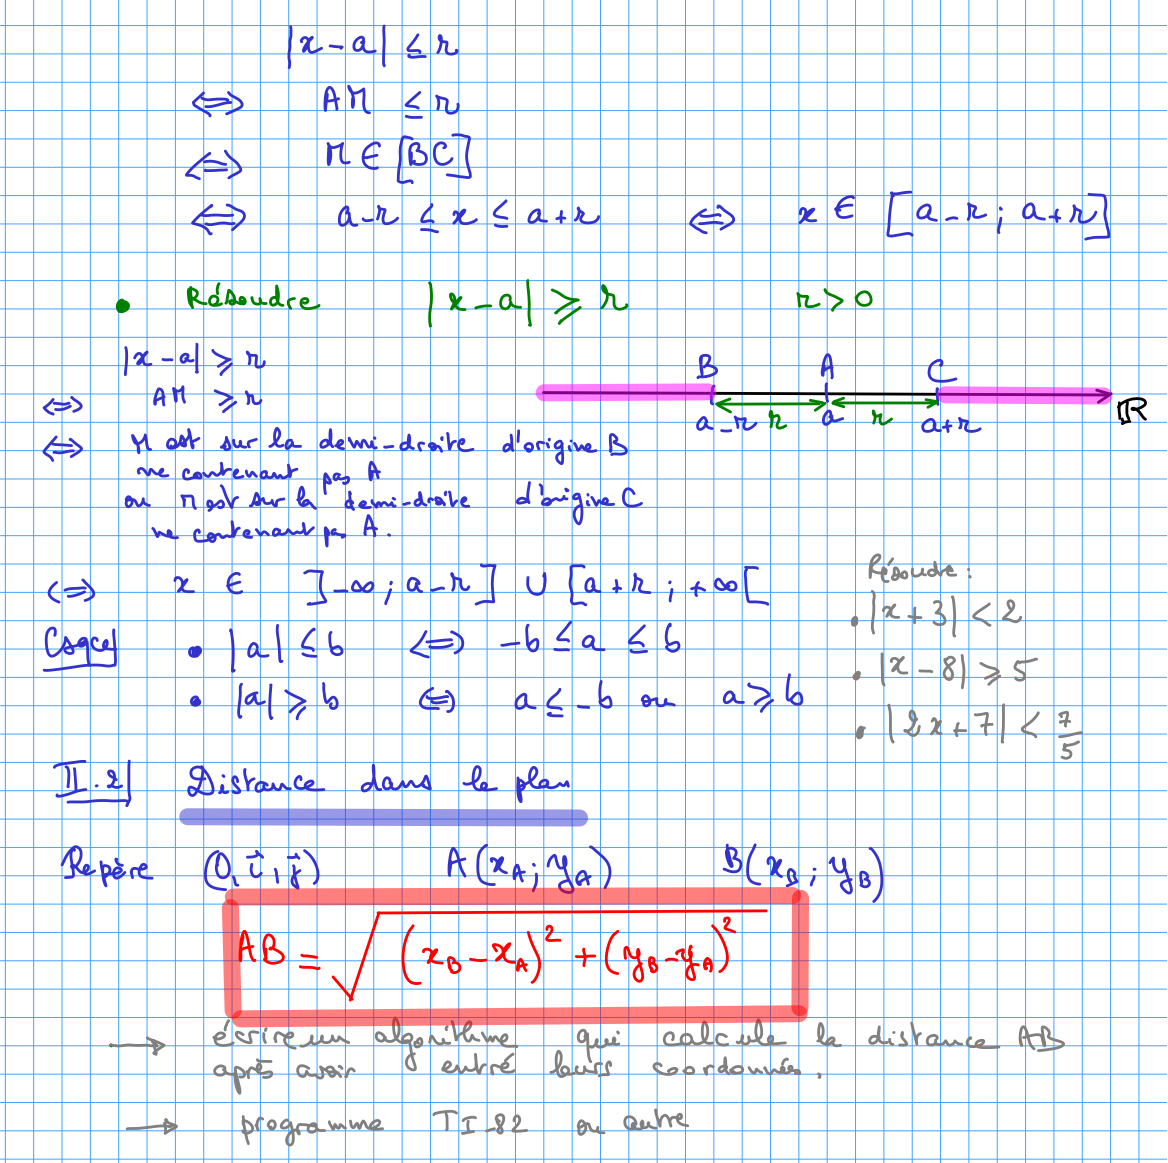 |x - a| ≤ r
⟺ AM ≤ r
⟺ M ∈ [BC]
⟺ a-r ≤ x ≤ a+r ⟺ x ∈ [a-r ; a+r]
• Résoudre |x-a| ⩾ r r > 0
|x - a| ⩾ r
⟺ AM ⩾ r
B A C
a-r r a r a+r ℝ
⟺ M est sur la demi-droite d'origine B
ne contenant pas A
ou M est sur la demi-droite d'origine C
ne contenant pas A.
⟺ x ∈ ]-∞ ; a-r] ∪ [a+r ; +∞[
Csqce • |a| ≤ b ⟺ -b ≤ a ≤ b
• |a| ⩾ b ⟺ a ≤ -b ou a ⩾ b
Résoudre :
• |x+3| < 2
• |x-8| ⩾ 5
• |2x+7| < 7/5
II.2 Distance dans le plan
Repère (O, i⃗, j⃗) A(x_A ; y_A) B(x_B ; y_B)
AB = √((x_B - x_A)² + (y_B - y_A)²)
→ écrire un algorithme qui calcule la distance AB
après avoir entré leurs coordonnées.
→ programme TI-82 ou autre